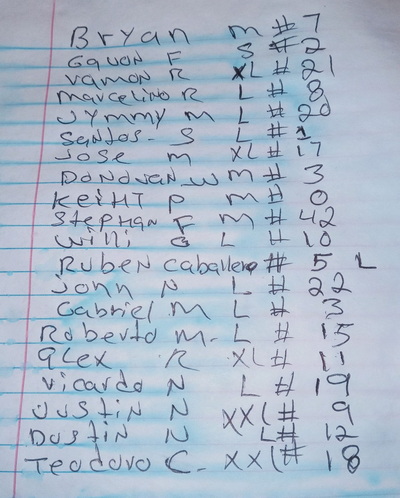 Bryan M # 7
Gquon F S # 2
Ramon R XL # 21
Marcelino R L # 8
Jymmy M L # 20
Santos - S L # 1
Jose M XL # 17
Donovan W M # 3
KeiHT P M # 0
Stephan F M # 42
Willi G L # 10
Ruben Caballero # 5 L
John N L # 22
Gabriel M L # 3
Roberto M. L # 15
Alex R XL # 11
Ricardo N L # 19
Justin N XXL # 9
Dustin N L # 12
Teodoro C. XXL # 18